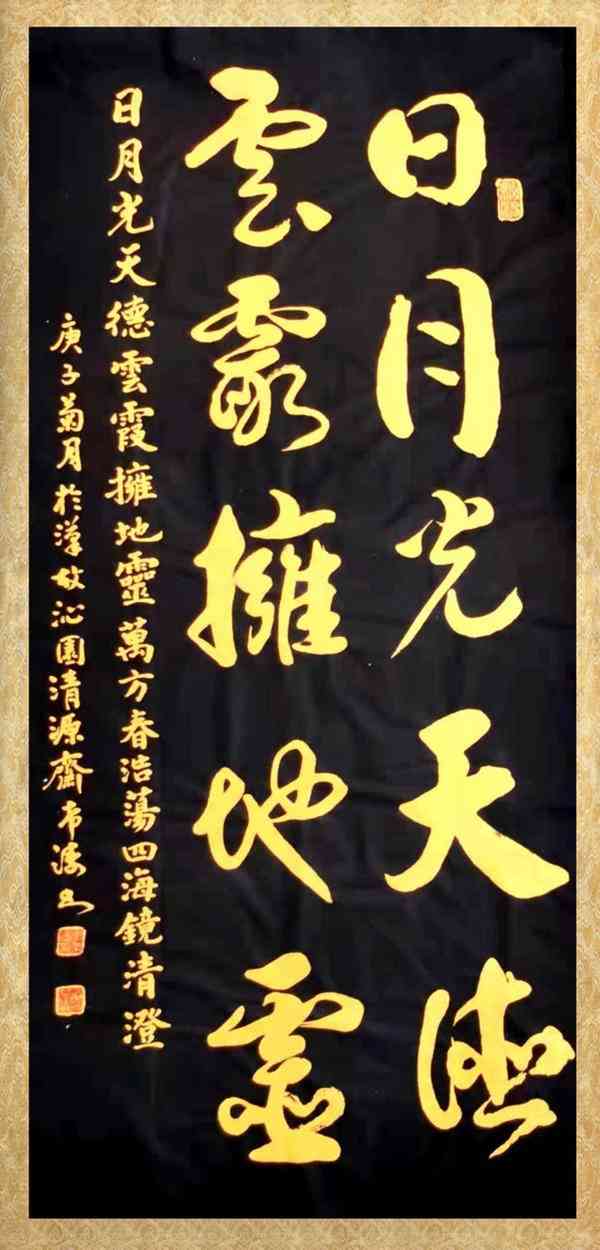 日月光天德
雲霞擁地靈
日月光天德雲霞擁地靈萬方春浩蕩四海鏡清澄
庚子菊月於漢皋沁園清源齋韦